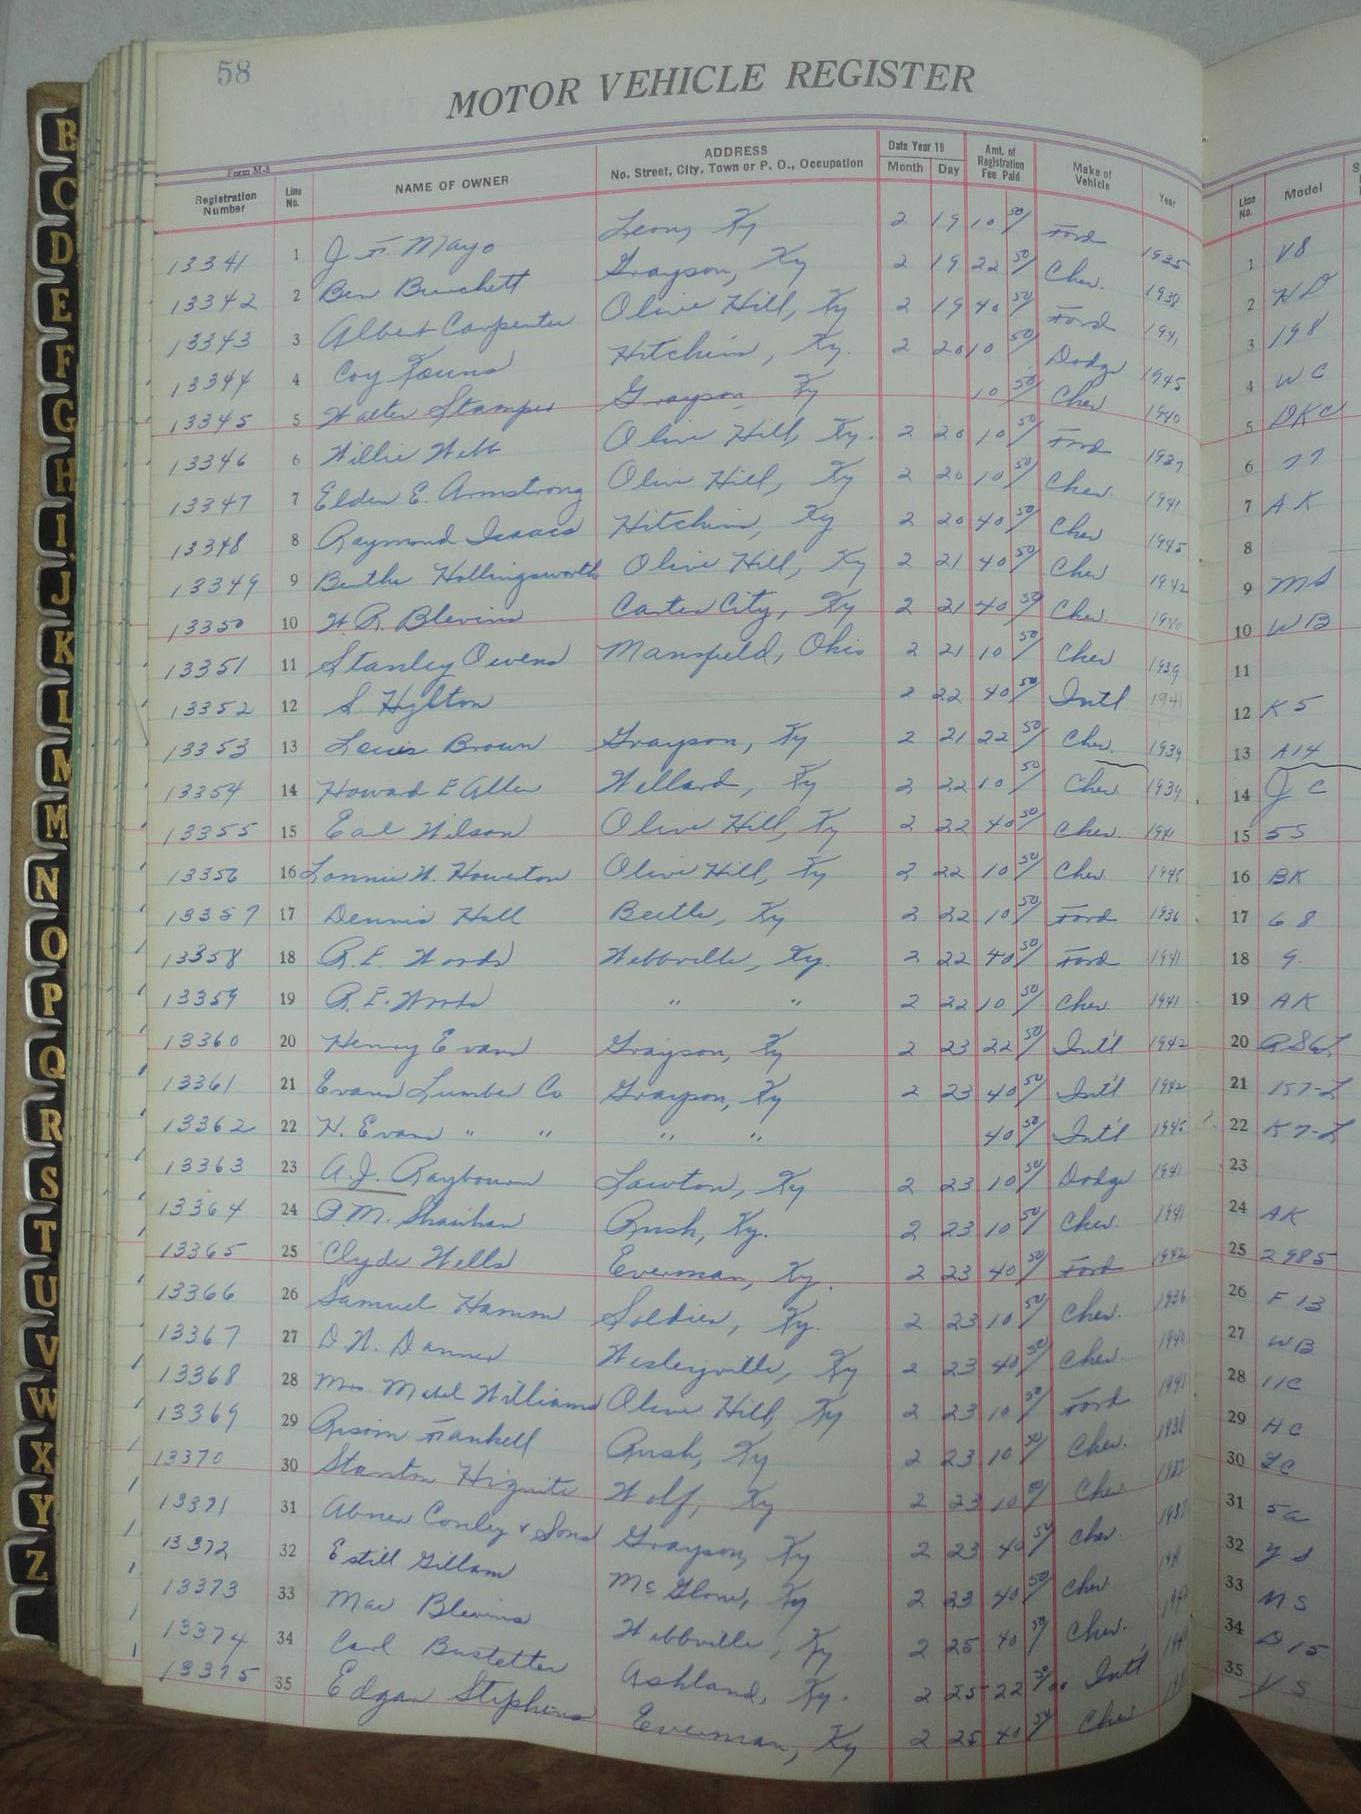 58
MOTOR VEHICLE REGISTER
Form M-5
Registration Number Line No. NAME OF OWNER ADDRESS No. Street, City, Town or P. O., Occupation Date Year 19 Month Day Amt. of Registration Fee Paid Make of Vehicle Year Line No. Model
13341 1 J. F. Mayo Leon, Ky 2 19 10 50 Ford 1935 1 V8
13342 2 Ben Burchett Grayson, Ky 2 19 22 50 Chev. 1938 2 HD
13343 3 Albert Carpenter Olive Hill, Ky 2 19 40 50 Ford 1941 3 198
13344 4 Coy Kouns Hitchins, Ky. 2 20 10 50 Dodge 1945 4 WC
13345 5 Walter Stamper Grayson, Ky 10 50 Chev 1940 5 DKC
13346 6 Willie Webb Olive Hill, Ky. 2 20 10 50 Ford 1937 6 77
13347 7 Elden E. Armstrong Olive Hill, Ky 2 20 10 50 Chev. 1941 7 AK
13348 8 Raymond Isaacs Hitchins, Ky 2 20 40 50 Chev 1945 8
13349 9 Bertha Hollingsworth Olive Hill, Ky 2 21 40 50 Chev 1942 9 MS
13350 10 W. R. Blevins Carter City, Ky 2 21 40 50 Chev. 1940 10 WB
13351 11 Stanley Owens Mansfield, Ohio 2 21 10 50 Chev 1939 11
13352 12 S. Hylton 2 22 40 50 Intl 1941 12 K5
13353 13 Louis Brown Grayson, Ky 2 21 22 50 Chev. 1939 13 A14
13354 14 Howard E Allen Willard, Ky 2 22 10 50 Chev 1939 14 JC
13355 15 Earl Wilson Olive Hill, Ky 2 22 40 50 Chev. 1941 15 5S
13356 16 Lonnie W. Howerton Olive Hill, Ky 2 22 10 50 Chev. 1941 16 BK
13357 17 Dennis Hall Beetle, Ky 2 22 10 50 Ford 1936 17 68
13358 18 R. E. Woods Webbville, Ky. 2 22 40 50 Ford 1941 18 9
13359 19 R. E. Woods " " 2 22 10 50 Chev. 1941 19 AK
13360 20 Henry Evans Grayson, Ky 2 23 22 50 Int'l 1942 20
13361 21 Evans Lumber Co Grayson, Ky 2 23 40 50 Int'l 1942 21 157-L
13362 22 H. Evans " " " " 40 50 Int'l 1945 22 K7-L
13363 23 A. J. Raybourn Lawton, Ky 2 23 10 50 Dodge 1941 23
13364 24 P. M. Rush, Ky. 2 23 10 50 Chev. 1941 24 AK
13365 25 Clyde Wells Everman, Ky. 2 23 40 50 Ford 1942 25 2985
13366 26 Samuel Hamm Soldier, Ky. 2 23 10 50 Chev. 1936 26 F13
13367 27 D. W. Danner Wesleyville, Ky 2 23 40 50 Chev. 1940 27 WB
13368 28 Mrs. Mabel Williams Olive Hill, Ky 2 23 10 50 Ford 1941 28 11C
13369 29 Rush, Ky 2 23 10 50 Chev. 1938 29 HC
13370 30 Stanton Hignite Wolf, Ky 2 23 10 50 Chev 30
13371 31 Abner Conley & Sons Grayson, Ky 2 23 40 50 Chev 31
13372 32 Estill Gillam McGlone, Ky 2 23 40 50 Chev 32 YS
13373 33 Mae Blevins Webbville, Ky 2 25 40 50 Chev. 33 MS
13374 34 Carl Bustetter Ashland, Ky. 2 25 22 50 Int'l 34 D15
13375 35 Edgar Stephens Everman, Ky 2 25 40 50 Chev 35 VS
B
C
D
E
F
G
H
I
J
K
L
M
M
N
O
P
Q
R
S
T
U
V
W
X
Y
Z